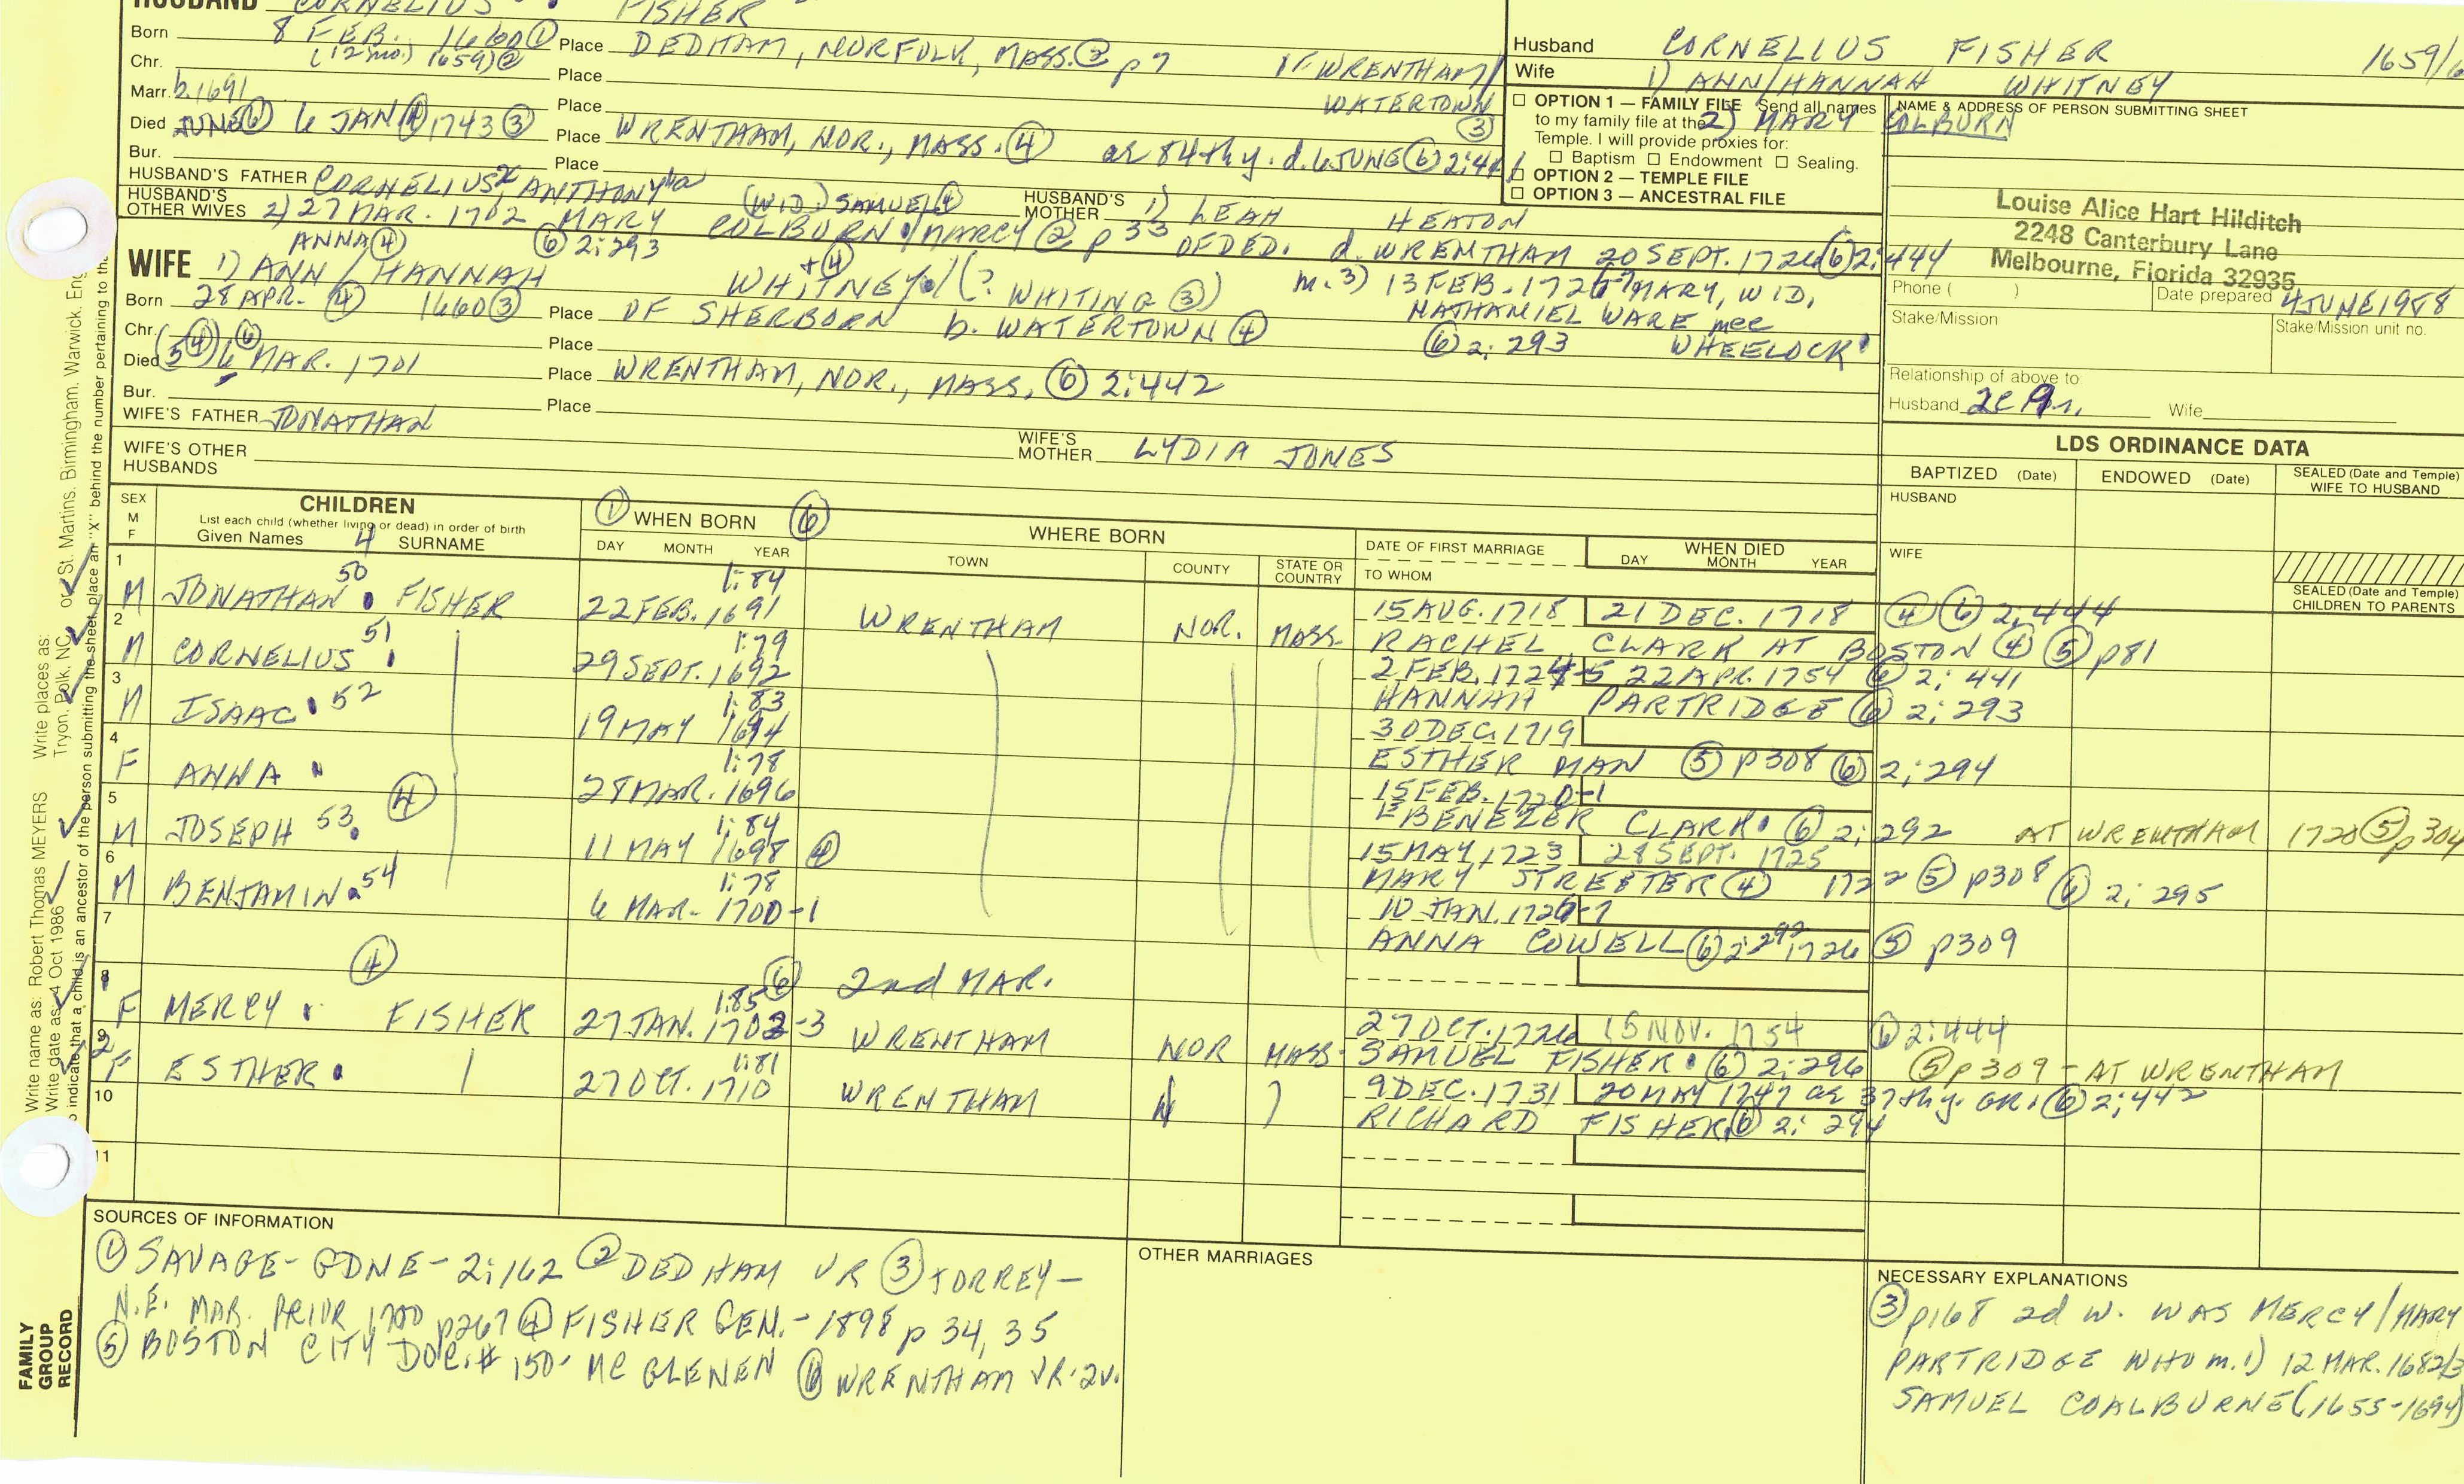 HUSBAND CORNELIUS FISHER
Born 8 FEB. 1660 ① Place DEDHAM, NORFOLK, MASS. ② p 7
Chr. (12 mo.) 1659) ② Place OF WRENTHAM/
Marr. b. 1691 Place WATERTOWN ③
Died JUNE ⑥ 6 JAN ④ 1743 ③ Place WRENTHAM, NOR., MASS. ④ ae 84th y. d. 6 JUNE ⑥ 2:441
Bur. Place
HUSBAND'S FATHER CORNELIUS, ANTHONY HUSBAND'S MOTHER 1) LEAH HEATON
(WID.) SAMUEL ④
HUSBAND'S OTHER WIVES 2) 27 MAR. 1702 MARY COLBURN / MARCY ② p 33 OF DED. d. WRENTHAM 20 SEPT. 1726 ⑥ 2:444
ANNA ④ ⑥ 2:293
WIFE 1) ANN / HANNAH WHITNEY / (? WHITING ③) +④ m. 3) 13 FEB. 1726-7 MARY, WID.
Born 28 APR. ④ 1660 ③ Place OF SHERBORN b. WATERTOWN ④ NATHANIEL WARE nee
Chr. Place ⑥ 2:293 WHEELOCK
Died (5 ④) 6 ⑥ MAR. 1701 Place WRENTHAM, NOR., MASS. ⑥ 2:442
Bur. Place
WIFE'S FATHER JONATHAN
WIFE'S MOTHER LYDIA JONES
WIFE'S OTHER HUSBANDS
Husband CORNELIUS FISHER 1659/6
Wife 1) ANN/HANNAH WHITNEY
2) MARY COLBURN
□ OPTION 1 — FAMILY FILE Send all names
to my family file at the
Temple. I will provide proxies for:
□ Baptism □ Endowment □ Sealing.
□ OPTION 2 — TEMPLE FILE
□ OPTION 3 — ANCESTRAL FILE
NAME & ADDRESS OF PERSON SUBMITTING SHEET
Louise Alice Hart Hilditch
2248 Canterbury Lane
Melbourne, Florida 32935
Phone ( ) Date prepared 4 JUNE 1988
Stake/Mission Stake/Mission unit no.
Relationship of above to:
Husband Wife
LDS ORDINANCE DATA
BAPTIZED (Date) ENDOWED (Date) SEALED (Date and Temple) WIFE TO HUSBAND
HUSBAND
WIFE
SEALED (Date and Temple) CHILDREN TO PARENTS
SEX M F
CHILDREN
List each child (whether living or dead) in order of birth
Given Names 4 SURNAME
① WHEN BORN ⑥
DAY MONTH YEAR
WHERE BORN
TOWN COUNTY STATE OR COUNTRY
DATE OF FIRST MARRIAGE
TO WHOM
WHEN DIED
DAY MONTH YEAR
1 M JONATHAN 50 FISHER 1:84 22 FEB. 1691 WRENTHAM NOR. MASS. 15 AUG. 1718 21 DEC. 1718 ④ ⑥ 2:444
RACHEL CLARK AT BOSTON ④ ⑤ p81
2 M CORNELIUS 51 1:79 29 SEPT. 1692 2 FEB. 1724-5 22 APR. 1754 ⑥ 2:441
HANNAH PARTRIDGE ⑥ 2:293
3 M ISAAC 52 1:83 19 MAY 1694 30 DEC. 1719
ESTHER MAN ⑤ p308 ⑥ 2:294
4 F ANNA 1:78 28 MAR. 1696 15 FEB. 1720-1
EBENEZER CLARK ⑥ 2:292 AT WRENTHAM 1720 ⑤ p304
5 M JOSEPH 53 ④ 1:84 11 MAY 1698 ④ 15 MAY 1723 28 SEPT. 1725
MARY STREETER ④ 1722 ⑤ p308 ⑥ 2:295
6 M BENJAMIN 54 1:78 6 MAR. 1700-1 10 JAN. 1726-7
ANNA COWELL ⑥ 2:292 1726 ⑤ p309
7
④ ⑥ 2nd MAR.
8 1 F MERCY FISHER 1:85 27 JAN. 1702-3 WRENTHAM NOR MASS. 27 OCT. 1726 15 NOV. 1754 ⑥ 2:444
SAMUEL FISHER ⑥ 2:296 ⑤ p309 - AT WRENTHAM
9 2 F ESTHER 1:81 27 OCT. 1710 WRENTHAM N 9 DEC. 1731 20 MAY 1747 ae 37th y. GR. ⑥ 2:442
RICHARD FISHER ⑥ 2:294
10
11
SOURCES OF INFORMATION
① SAVAGE - GDNE - 2:162 ② DEDHAM VR ③ TORREY -
N.E. MAR. PRIOR 1700 p267 ④ FISHER GEN. - 1898 p 34, 35
⑤ BOSTON CITY DOC. # 150 - MC GLENEN ⑥ WRENTHAM VR. 2v.
OTHER MARRIAGES
NECESSARY EXPLANATIONS
③ p168 2d w. WAS MERCY/MARY
PARTRIDGE WHO m. 1) 12 MAR. 1682/3
SAMUEL COALBURNE (1655-1694)
FAMILY GROUP RECORD
Write name as: Robert Thomas MEYERS Write places as: Tryon, Polk, NC or St. Martins, Birmingham, Warwick, Eng
Write date as: 4 Oct 1986
o indicate that a child is an ancestor of the person submitting the sheet, place an "X" behind the number pertaining to the